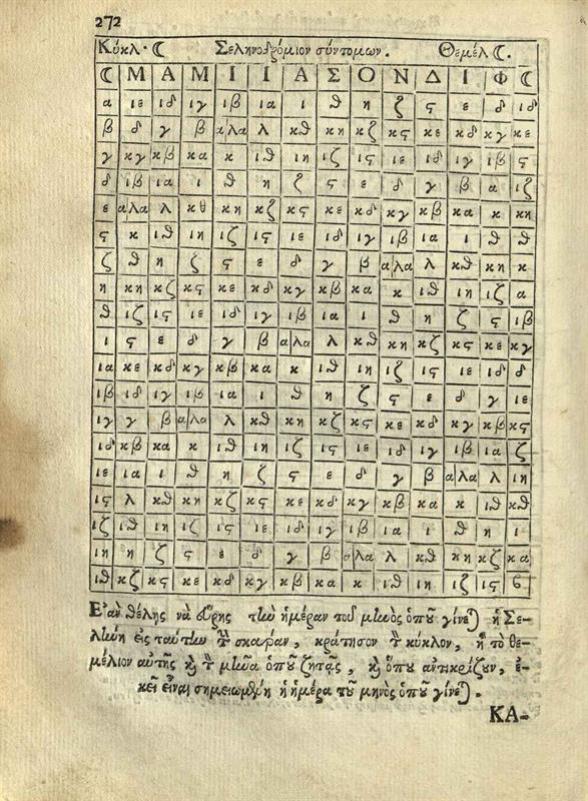 272
Κύκλ· ☾ Σεληνοδρόμιον σύντομων. Θεμέλ ☾.
☾ Μ Α Μ Ι Ι Α Σ Ο Ν Δ Ι Φ ☾
α ιε ιδ ιγ ιβ ια ι θ η ζ ς ε δ ιδ
β δ γ β α λα λ κθ κη κζ κς κε κδ κγ κε
γ κγ κβ κα κ ιθ ιη ιζ ις ιε ιδ ιγ ιβ ς
δ ιβ ια ι θ η ζ ς ε δ γ β α ιζ
ε α λα λ κθ κη κζ κς κε κδ κγ κβ κα κ κη
ς κ ιθ ιη ιζ ις ιε ιδ ιγ ιβ ια ι θ θ
ζ θ η ζ ς ε δ γ β α λα λ κθ κη κ
η κη κζ κς κε κδ κγ κβ κα κ ιθ ιη ιζ α
θ ιζ ις ιε ιδ ιγ ιβ ια ι θ η ζ ς ιβ
ι ς ε δ γ β α λα λ κθ κη κζ κς κε κγ
ια κε κδ κγ κβ κα κ ιθ ιη ιζ ις ιε ιδ δ
ιβ ιδ ιγ ιβ ια ι θ η ζ ς ε δ γ ιε
ιγ γ β α λα λ κθ κη κζ κς κε κδ κγ κβ κς
ιδ κβ κα κ ιθ ιη ιζ ις ιε ιδ ιγ ιβ ια ζ
ιε ια ι θ η ζ ς ε δ γ β α λα λ ιη
ις λ κθ κη κζ κς κε κδ κγ κβ κα κ ιθ κθ
ιζ ιθ ιη ιζ ις ιε ιδ ιγ ιβ ια ι θ η ι
ιη η ζ ς ε δ γ β α λα λ κθ κη κζ κα
ιθ κζ κς κε κδ κγ κβ κα κ ιθ ιη ιζ ις 6
Ἐὰν θέλῃς νὰ εὕρῃς τὴν ἡμέραν τοῦ μηνὸς ὁποῦ γίνεται ἡ Σε-
λήνη εἰς ταύτην τὸν σκαφὰν, κράτησον τὸν κύκλον, ἢ τὸ θε-
μέλιον αὐτῆς καὶ τὸν μῆνα ὁποῦ ζητᾷς, καὶ ὁποῦ ἀντικρίζουν, ἐ-
κεῖ εἶναι σημειωμένη ἡ ἡμέρα τοῦ μηνὸς ὁποῦ γίνεται.
ΚΑ-